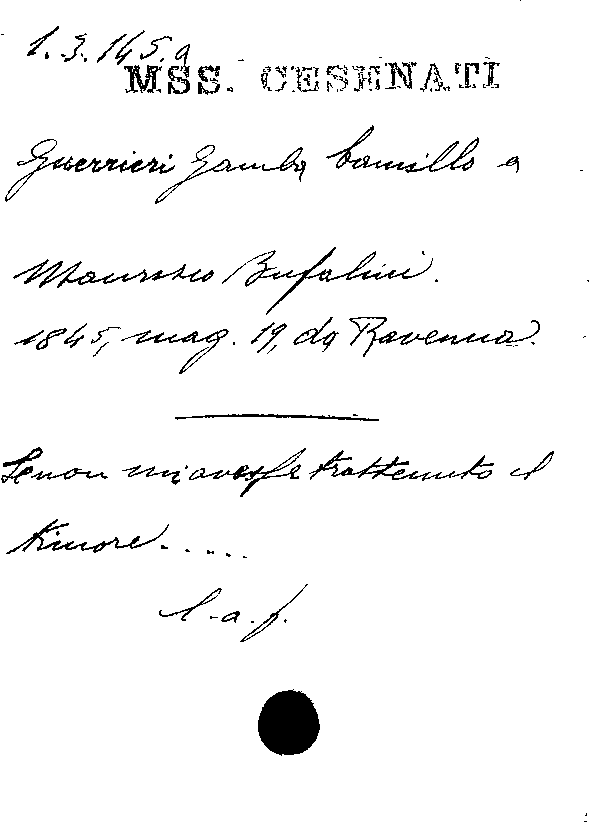 1.3.145.a
MSS. CESENATI
Guerrieri Gamba Camillo a
Maurizio Bufalini.
1845, mag. 19, da Ravenna.
Se non mi avesse trattenuto il
timore.....
l.a.f.